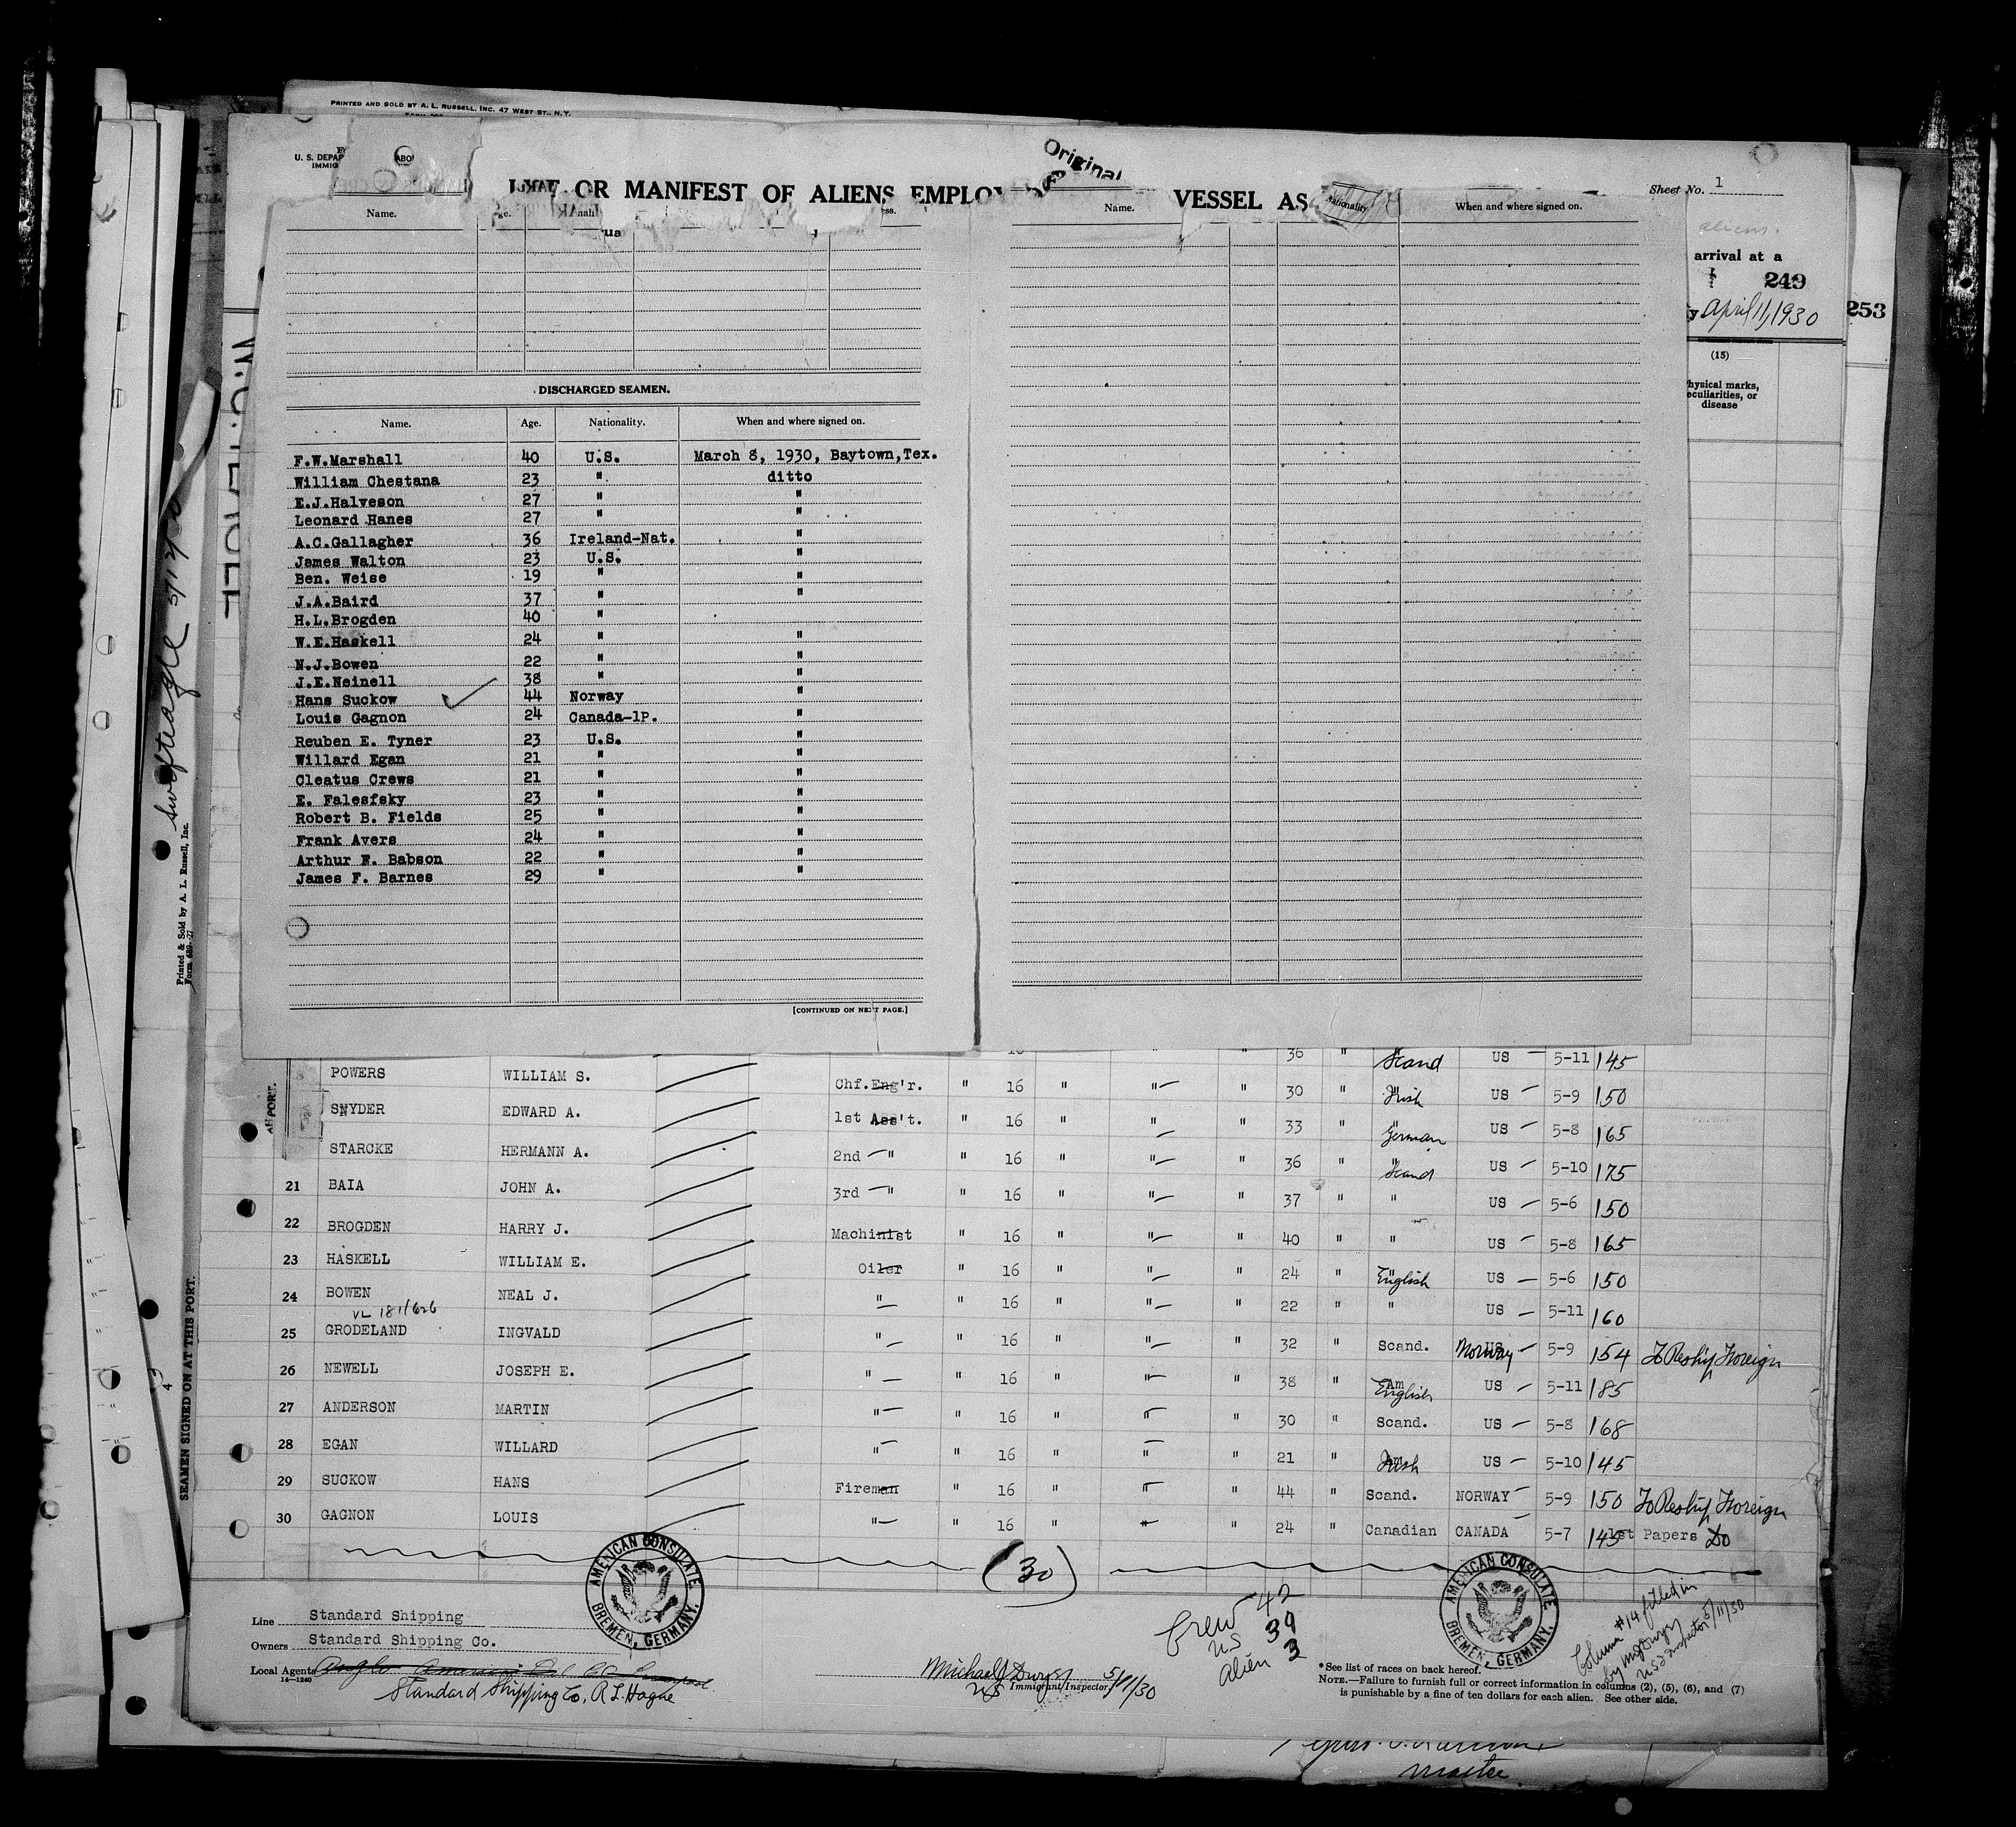 PRINTED AND SOLD BY A. L. RUSSELL, INC. 47 WEST ST., N.Y.
Original
U. S. DEPAR ABO
IMMIG
OR MANIFEST OF ALIENS EMPLOY VESSEL AS
Sheet No. 1
Name. Name. Nationality When and where signed on.
aliens.
arrival at a
249
April 11, 1930
253
(15)
hysical marks,
eculiarities, or
disease
DISCHARGED SEAMEN.
Name. Age. Nationality. When and where signed on.
F.W.Marshall 40 U.S. March 8, 1930, Baytown,Tex.
William Chestana 23 " ditto
E.J.Halveson 27 " "
Leonard Hanes 27 " "
A.C.Gallagher 36 Ireland-Nat. "
James Walton 23 U.S. "
Ben. Weise 19 " "
J.A.Baird 37 " "
H.L.Brogden 40 "
W.E.Haskell 24 " "
N.J.Bowen 22 " "
J.E.Neinell 38 " "
Hans Suckow 44 Norway "
Louis Gagnon 24 Canada-1P. "
Reuben E. Tyner 23 U.S. "
Willard Egan 21 " "
Cleatus Crews 21 " "
E. Falesfsky 23 " "
Robert B. Fields 25 " "
Frank Avers 24 " "
Arthur F. Babson 22 " "
James F. Barnes 29 " "
[CONTINUED ON NEXT PAGE.]
Swifteagle
Printed & Sold by A. L. Russell, Inc.
Form 689-27
4
SEAMEN SIGNED ON AT THIS PORT.
36 " Scand US 5-11 145
POWERS WILLIAM S. Chf.Eng'r. " 16 " " " 30 " Irish US 5-9 150
SNYDER EDWARD A. 1st Ass't. " 16 " " " 33 " German US 5-8 165
STARCKE HERMANN A. 2nd " " 16 " " " 36 " Scand US 5-10 175
21 BAIA JOHN A. 3rd " " 16 " " " 37 " " US 5-6 150
22 BROGDEN HARRY J. Machinist " 16 " " " 40 " " US 5-8 165
23 HASKELL WILLIAM E. Oiler " 16 " " " 24 " English US 5-6 150
24 BOWEN NEAL J. " " 16 " " " 22 " " US 5-11 160
VL 181/626
25 GRODELAND INGVALD " " 16 " " " 32 " Scand. Norway 5-9 154 To Reship Foreign
26 NEWELL JOSEPH E. " " 16 " " " 38 " English US 5-11 185
27 ANDERSON MARTIN " " 16 " " " 30 " Scand. US 5-8 168
28 EGAN WILLARD " " 16 " " " 21 " Irish US 5-10 145
29 SUCKOW HANS Fireman " 16 " " " 44 " Scand. NORWAY 5-9 150 To Reship Foreign
30 GAGNON LOUIS " " 16 " " " 24 " Canadian CANADA 5-7 145 1st Papers Do
(30)
AMERICAN CONSULATE BREMEN, GERMANY.
AMERICAN CONSULATE BREMEN, GERMANY.
Line Standard Shipping
Owners Standard Shipping Co.
Local Agents
14-1240
Standard Shipping Co, R L Hague
Michael J Dwyer 5/11/30
US Immigrant Inspector
Crew 42
US 39
alien 3
Column #14 filled in
US Inspector 5/11/30
*See list of races on back hereof.
NOTE.—Failure to furnish full or correct information in columns (2), (5), (6), and (7)
is punishable by a fine of ten dollars for each alien. See other side.